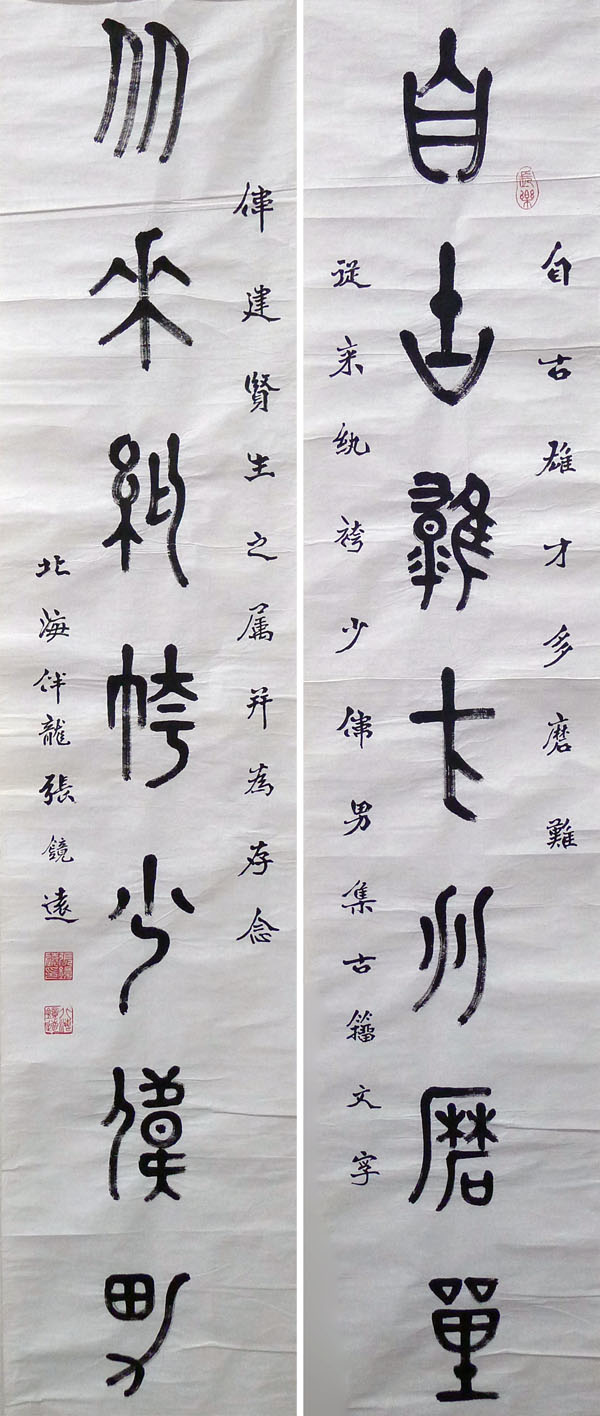 長樂
自古雄才多磨難
自古雄才多磨難
從来紈袴少偉男集古籀文字
偉建賢生之属并為存念
從来紈袴少偉男
北海伴龍張鏡遠